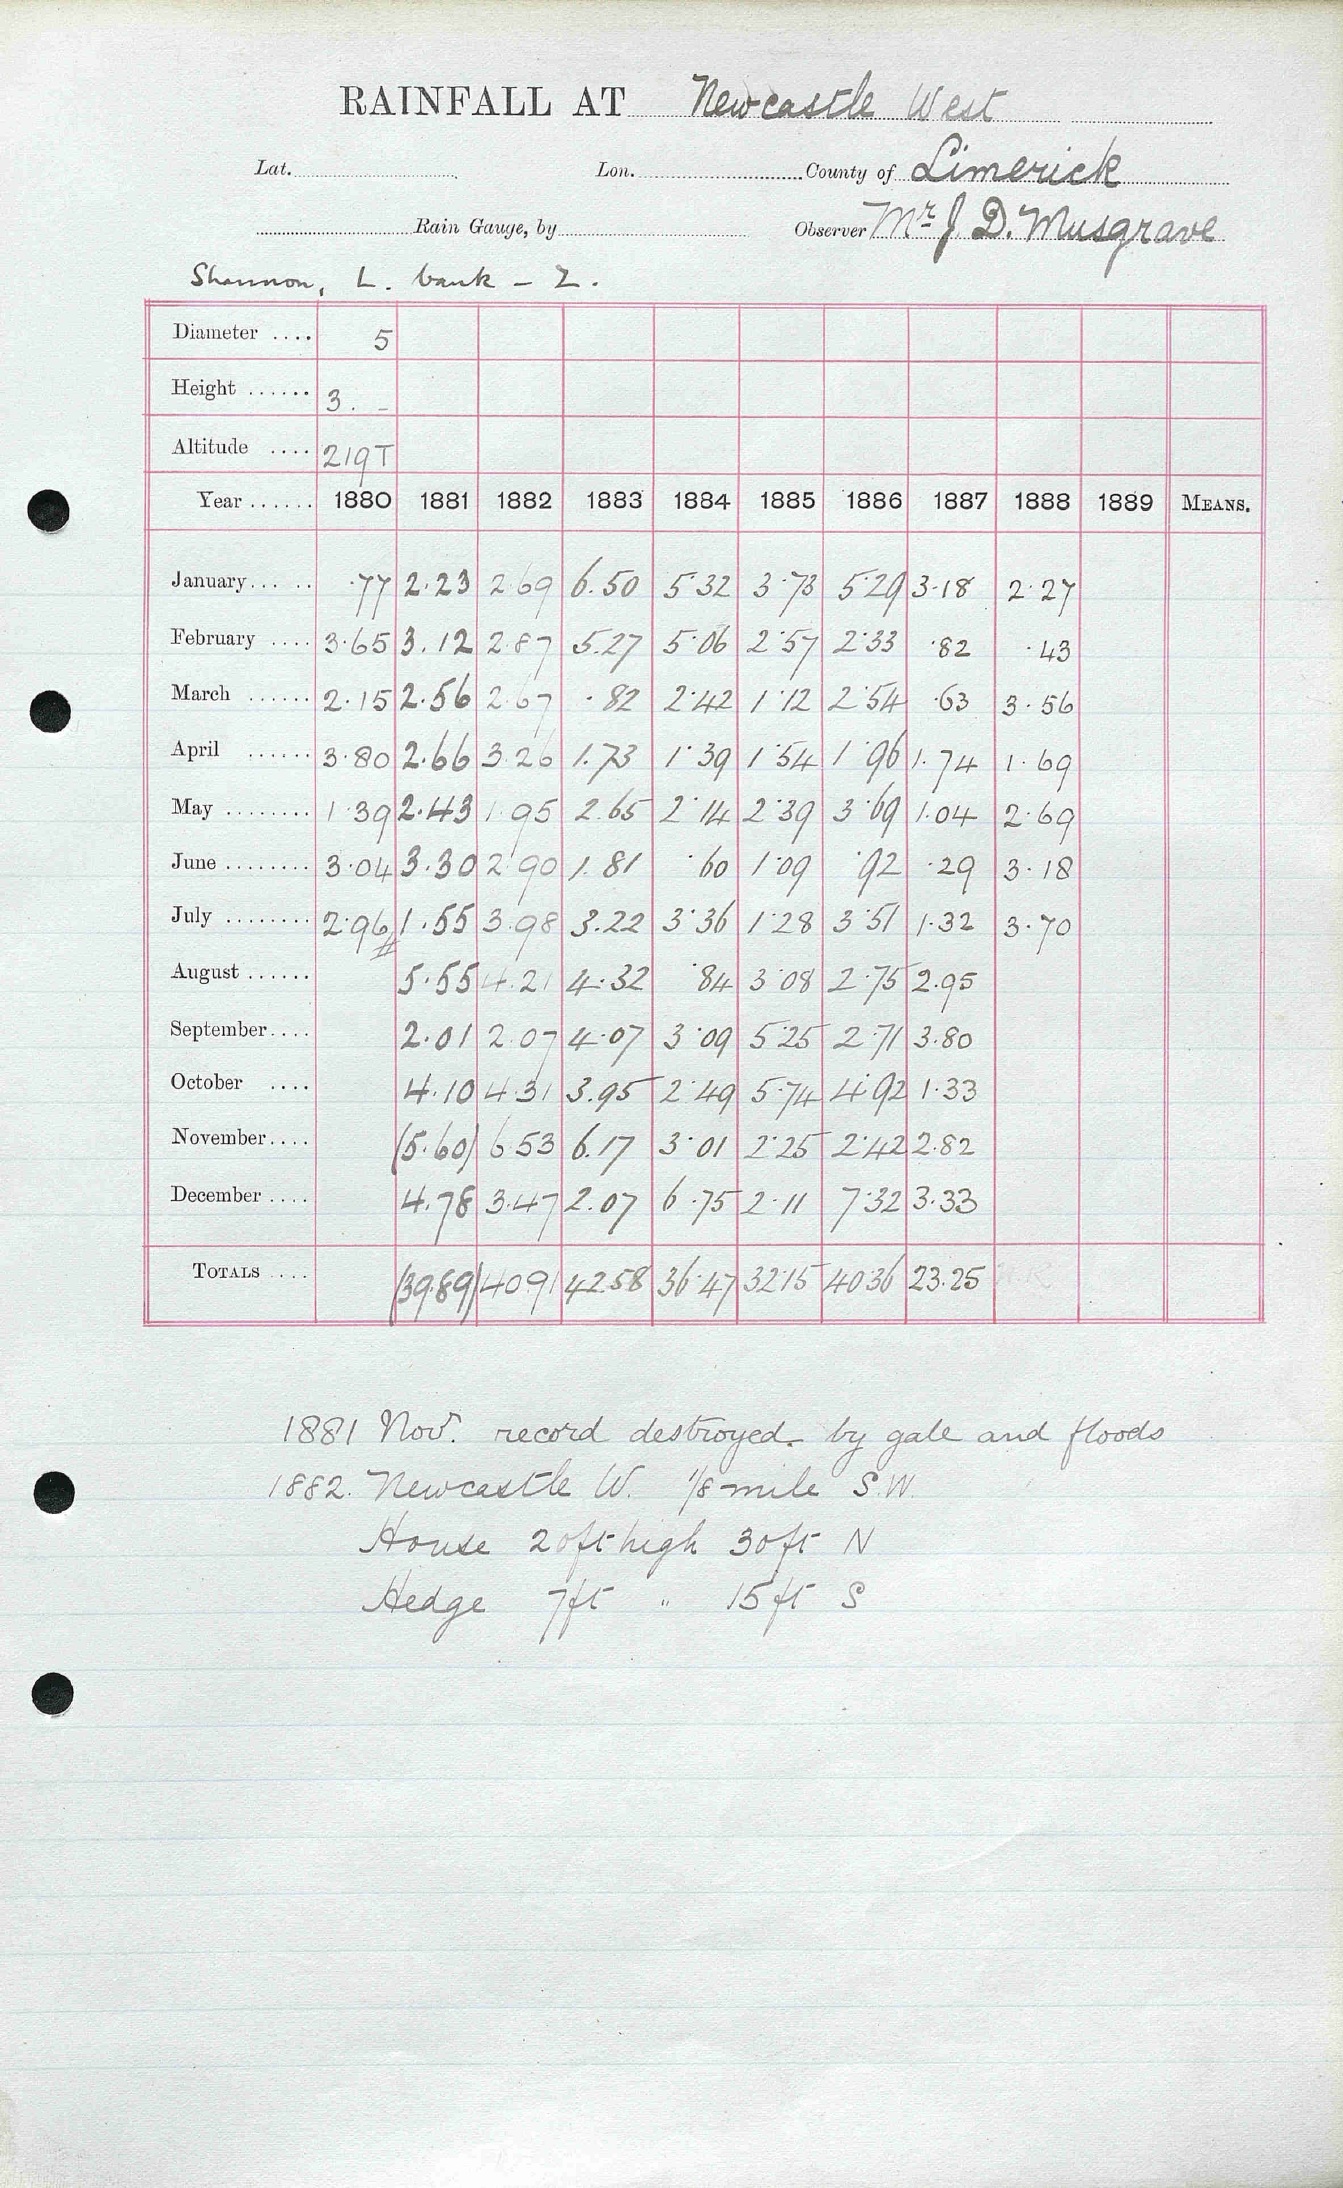 RAINFALL AT Newcastle West
Lat. Lon. County of Limerick
Rain Gauge, by Observer Mr J D. Musgrave
Shannon, L. bank - Z.
Diameter .... 5
Height ...... 3. -
Altitude .... 219T
Year ...... 1880 1881 1882 1883 1884 1885 1886 1887 1888 1889 MEANS.
January... .. .77 2.23 2.69 6.50 5.32 3.73 5.29 3.18 2.27
February .... 3.65 3.12 2.87 5.27 5.06 2.57 2.33 .82 .43
March ...... 2.15 2.56 2.67 .82 2.42 1.12 2.54 .63 3.56
April ...... 3.80 2.66 3.26 1.73 1.39 1.54 1.96 1.74 1.69
May ........ 1.39 2.43 1.95 2.65 2.14 2.39 3.69 1.04 2.69
June ........ 3.04 3.30 2.90 1.81 .60 1.09 .92 .29 3.18
July ........ 2.96 1.55 3.98 3.22 3.36 1.28 3.51 1.32 3.70
August ...... 5.55 4.21 4.32 .84 3.08 2.75 2.95
September.... 2.01 2.07 4.07 3.09 5.25 2.71 3.80
October .... 4.10 4.31 3.95 2.49 5.74 4.92 1.33
November.... (5.60) 6.53 6.17 3.01 2.25 2.42 2.82
December .... 4.78 3.47 2.07 6.75 2.11 7.32 3.33
TOTALS .... (39.89) 40.91 42.58 36.47 32.15 40.36 23.25
1881 Nov. record destroyed by gale and floods
1882. Newcastle W. 1/8 mile S.W.
House 20ft high 30ft N
Hedge 7ft " 15ft S